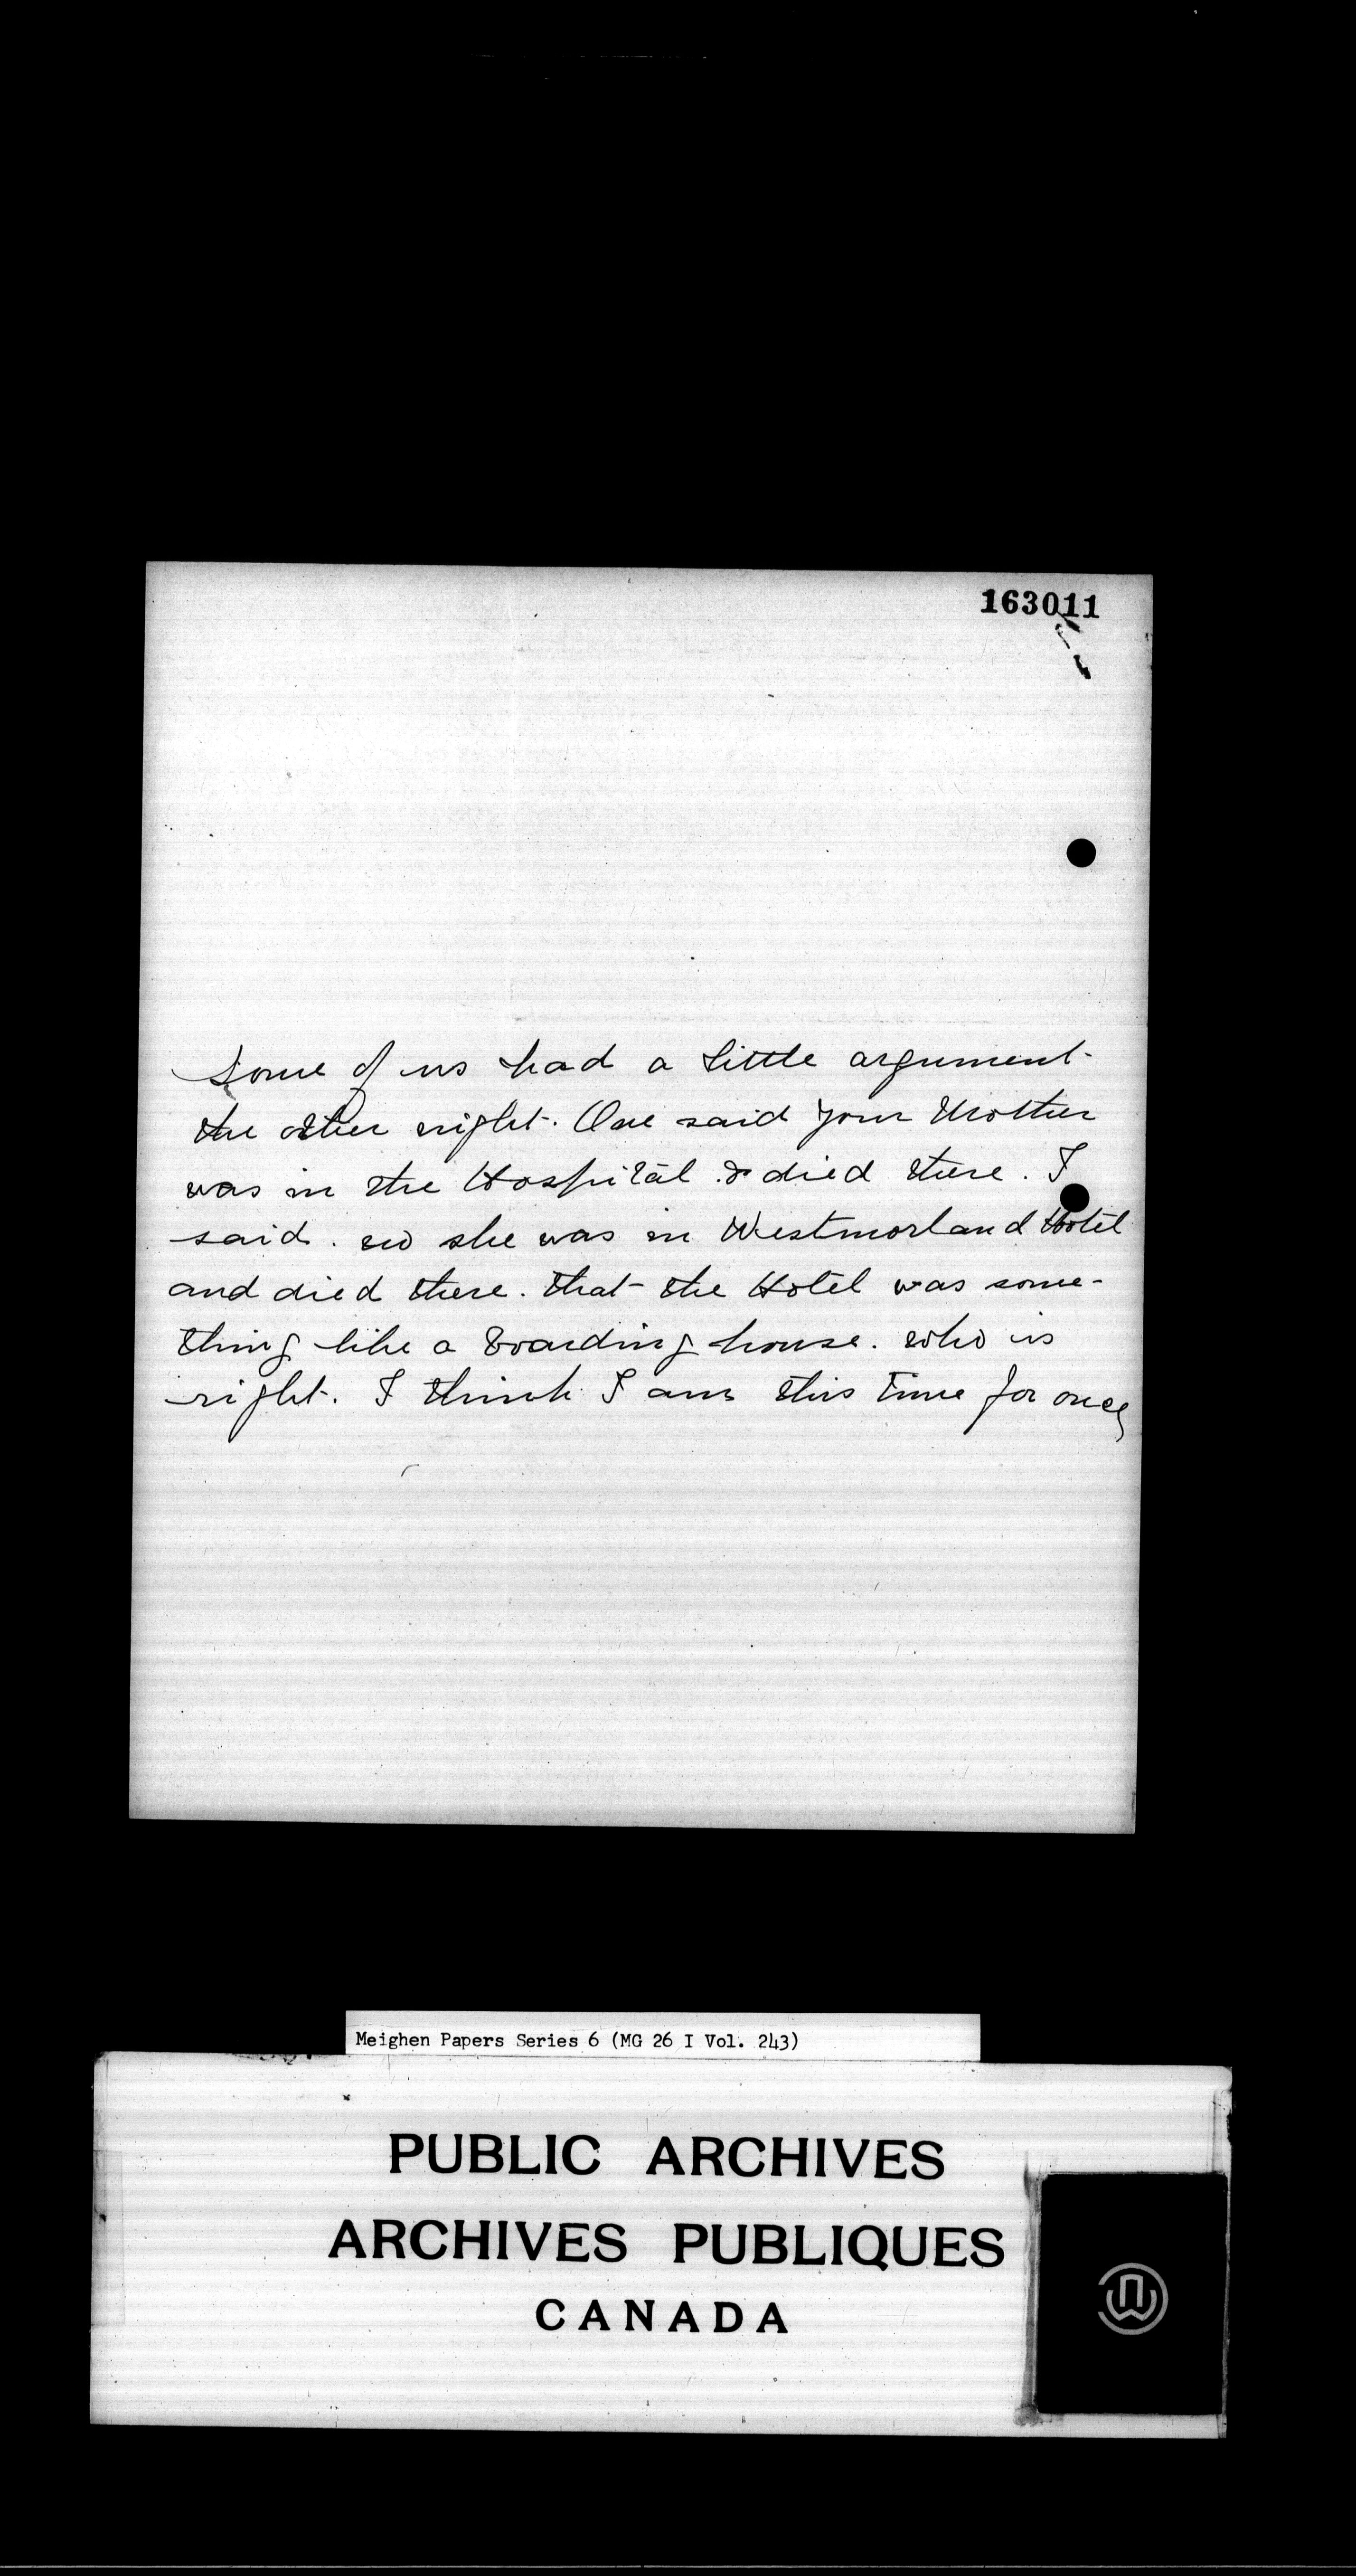 163011
Some of us had a little argument
the other night. One said your Mother
was in the Hospital & died there. I
said. no she was in Westmorland Hotel
and died there. that the Hotel was some-
thing like a boarding house. who is
right. I think I am this time for once
Meighen Papers Series 6 (MG 26 I Vol. 243)
PUBLIC ARCHIVES
ARCHIVES PUBLIQUES
CANADA